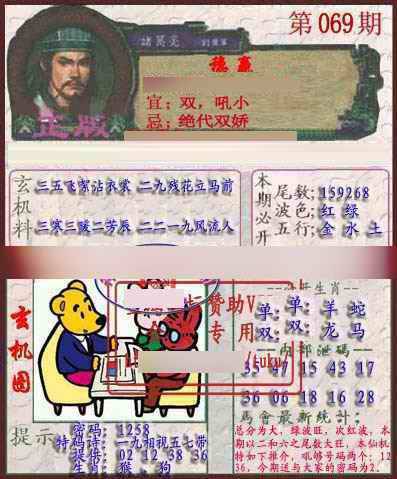 第069期
諸葛亮
稳赢
宜：双，吼小
忌：绝代双娇
正版
玄机料
三五飞絮沾衣裳 二九残花立马前
三寒三暖二芳辰 二二一九风流人
本期必开
尾数：159268
波色：红 绿
五行：金 水 土
玄机图
赞助V
专用
/tuku
开生肖
单：单：羊 蛇
双：双：龙 马
内部泄码
35 47 15 43 17
36 06 18 16 28
馬會最新統计：
总分为大，绿波旺，次红波，本期以二和六之尾数大旺，本仙机特如下推介，吼够号码两个：1236，今期送与大家的密码为2.
提示
密码：1258
特码诗：一九相视五七带
提倍：02 12 38 36
生肖：猴、狗